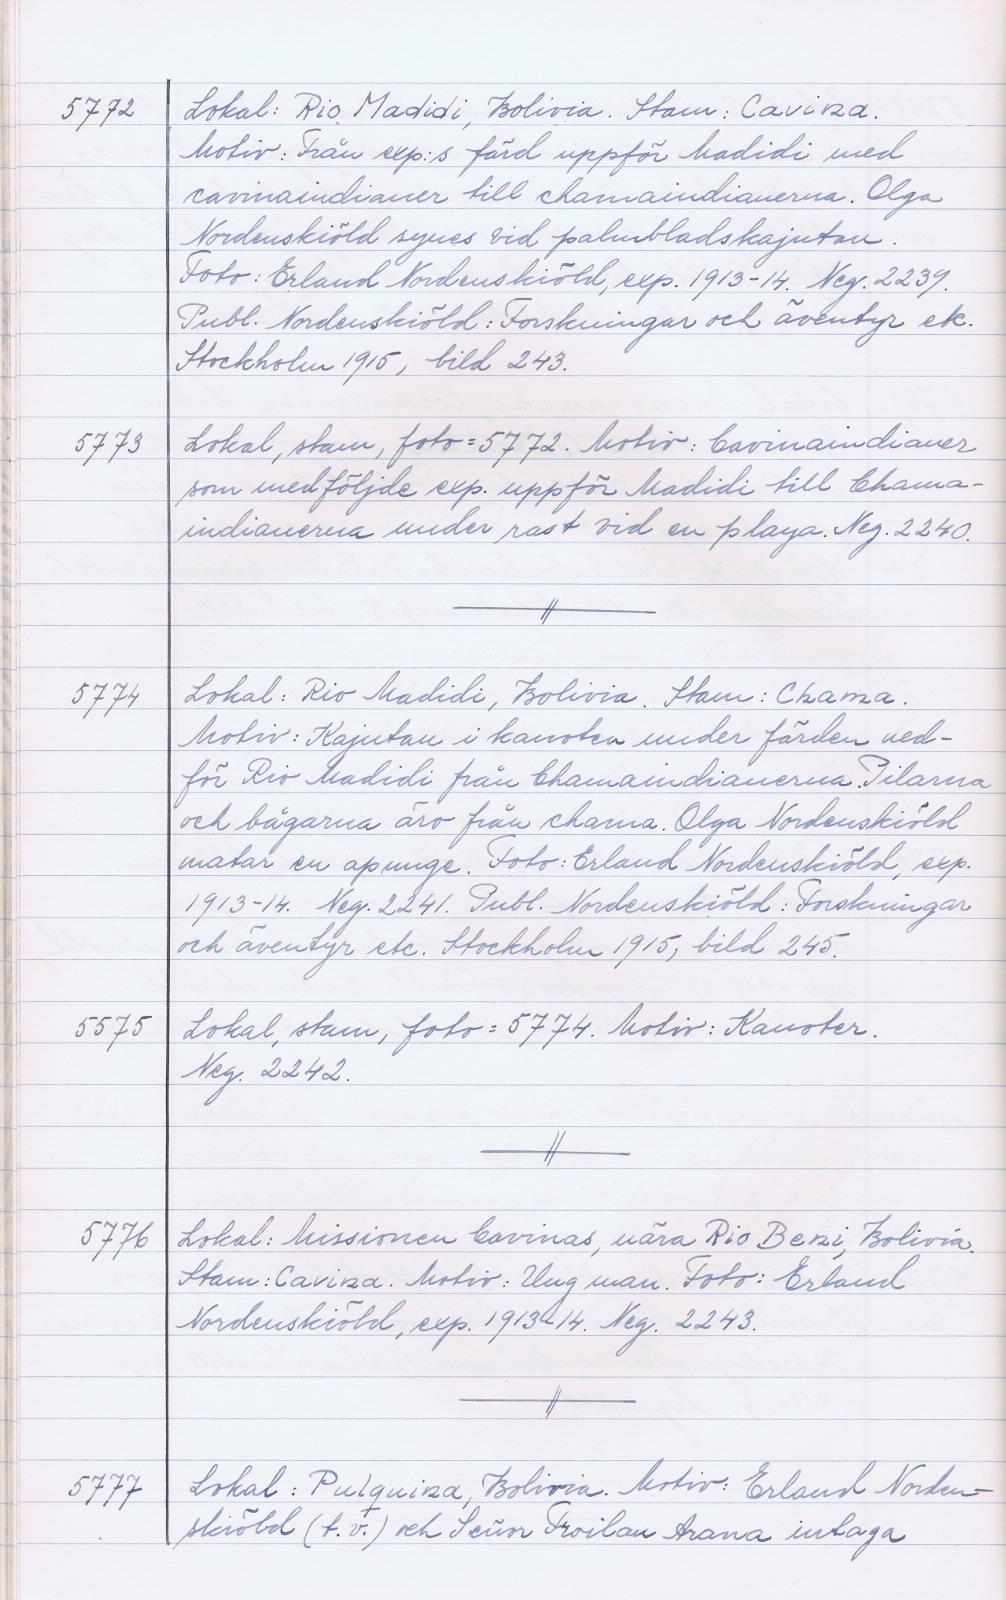 5772 Lokal: Rio Madidi, Bolivia. Stam: Cavina.
Motiv: Från exp:s färd uppför Madidi med
cavinaindianer till chamaindianerna. Olga
Nordenskiöld synes vid palmbladskajutan.
Foto: Erland Nordenskiöld, exp. 1913-14. Neg. 2239.
Publ. Nordenskiöld: Forskningar och äventyr etc.
Stockholm 1915, bild 243.
5773 Lokal, stam, foto = 5772. Motiv: Cavinaindianer
som medföljde exp. uppför Madidi till Chama-
indianerna under rast vid en playa. Neg. 2240.
5774 Lokal: Rio Madidi, Bolivia. Stam: Chama.
Motiv: Kajutan i kanoten under färden ned-
för Rio Madidi från Chamaindianerna. Pilarna
och bågarna äro från chama. Olga Nordenskiöld
matar en apunge. Foto: Erland Nordenskiöld, exp.
1913-14. Neg. 2241. Publ. Nordenskiöld: Forskningar
och äventyr etc. Stockholm 1915, bild 245.
5575 Lokal, stam, foto = 5774. Motiv: Kanoter.
Neg. 2242.
5776 Lokal: Missionen Cavinas, nära Rio Beni, Bolivia.
Stam: Cavina. Motiv: Ung man. Foto: Erland
Nordenskiöld, exp. 1913-14. Neg. 2243.
5777 Lokal: Pulquina, Bolivia. Motiv: Erland Norden-
skiöld (t.v.) och Señor Froilan Arana intaga